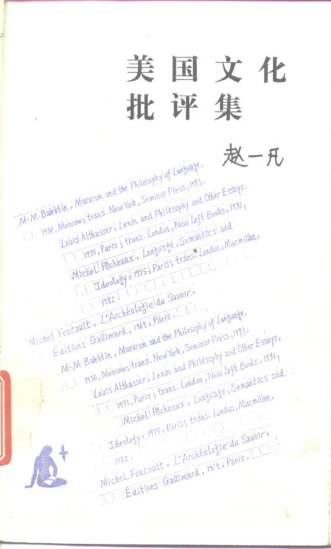 美国文化
批评集
赵一凡
M·M·Bakhtin, Marxism and the Philosophy of Language,
1930, Moscow; trans. New York, Seminar Press, 1973.
Louis Althusser, Lenin and Philosophy and Other Essays.
1971, Paris; trans. London, New Left Books, 1971,
Michel Pêcheaux, Language, Semantics and
Ideology, 1975; Paris; trans. London, Macmillan,
1982.
Michel Foucault, L'Archéologie du Savoir,
Éditions Gallimard, 1969, Paris.
M·M·Bakhtin, Marxism and the Philosophy of Language,
1930, Moscow; trans. New York, Seminar Press, 1973.
Louis Althusser, Lenin and Philosophy and Other Essays,
1971, Paris; trans. London, New Left Books, 1971,
Michel Pêcheaux, Language, Semantics and
Ideology, 1975; Paris; trans. London, Macmillan,
1982.
Michel Foucault, L'Archéologie du Savoir,
Éditions Gallimard, 1969, Paris.